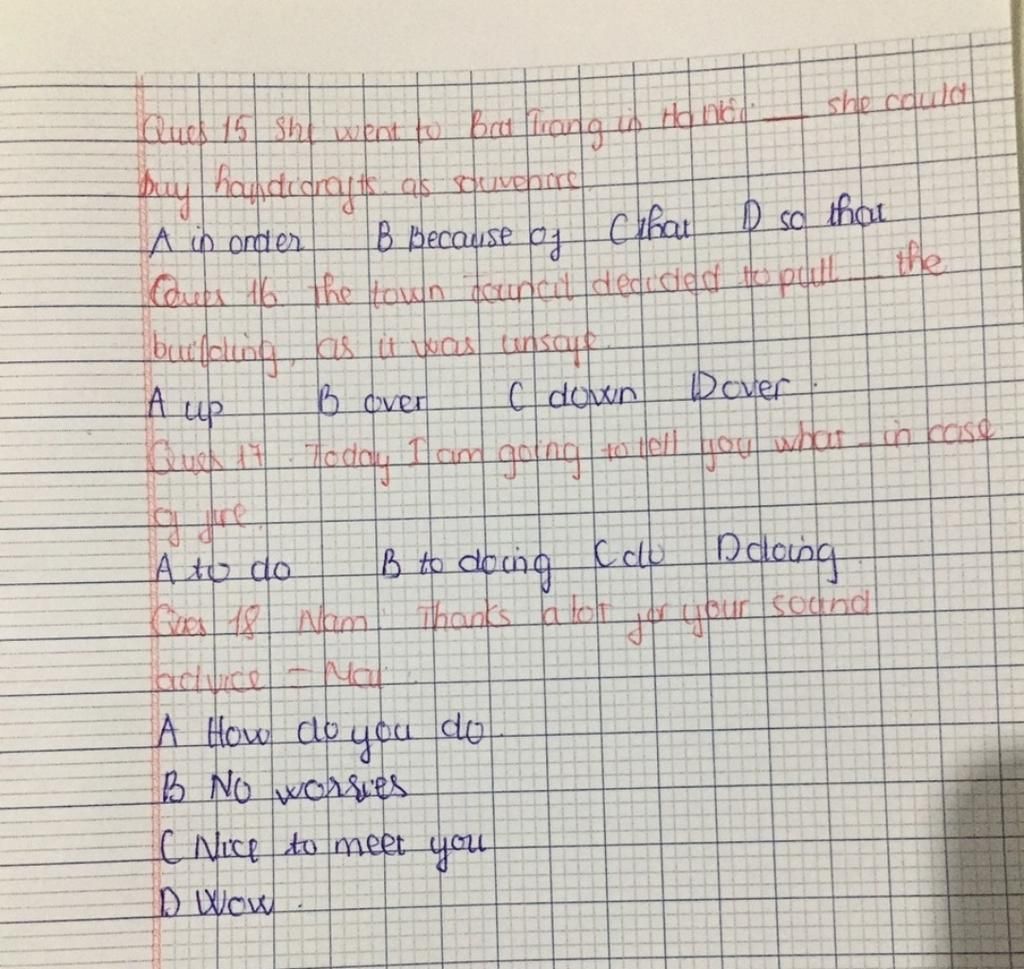 Ques 15 She went to Bat Trang in Ha Noi ___ she could
buy handicrafts as souvenors
A in order B Because of C that D so that
Ques 16 The town council decided to pull __ the
building, as it was unsafe
A up B over C down D over.
Ques 17. Today I am going to tell you what _ in case
of fire.
A to do B to doing C do D doing
Ques 18 Nam: Thanks a lot for your sound
advice - Mai
A How do you do
B No worries
C Nice to meet you
D Wow.